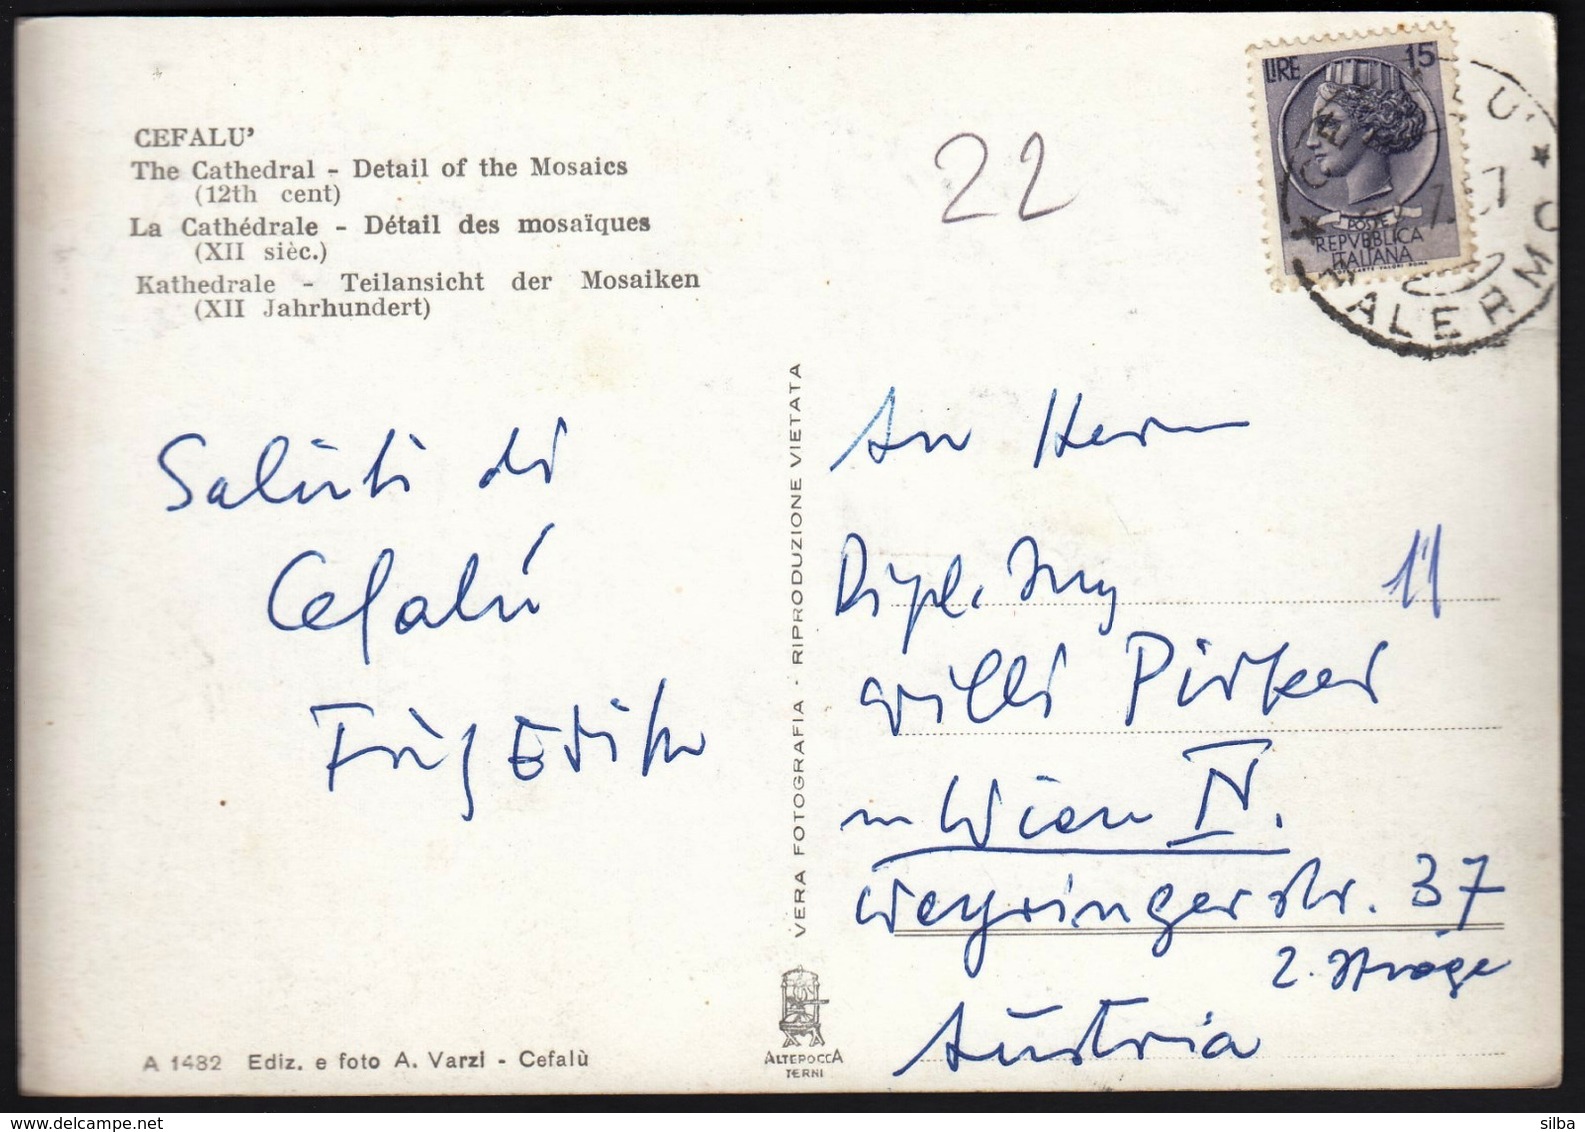 CEFALU'
The Cathedral - Detail of the Mosaics
(12th cent)
La Cathédrale - Détail des mosaïques
(XII sièc.)
Kathedrale - Teilansicht der Mosaiken
(XII Jahrhundert)
22
LIRE 15
POSTE
REPVBBLICA
ITALIANA
Saluti di
Cefalú
VERA FOTOGRAFIA - RIPRODUZIONE VIETATA
An Herrn
Dipl. Ing
Willi Pirker
in Wien IV.
Weyringerstr. 37
2. Stiege
Austria
A 1482 Ediz. e foto A. Varzi - Cefalù
ALTEROCCA
TERNI
silba